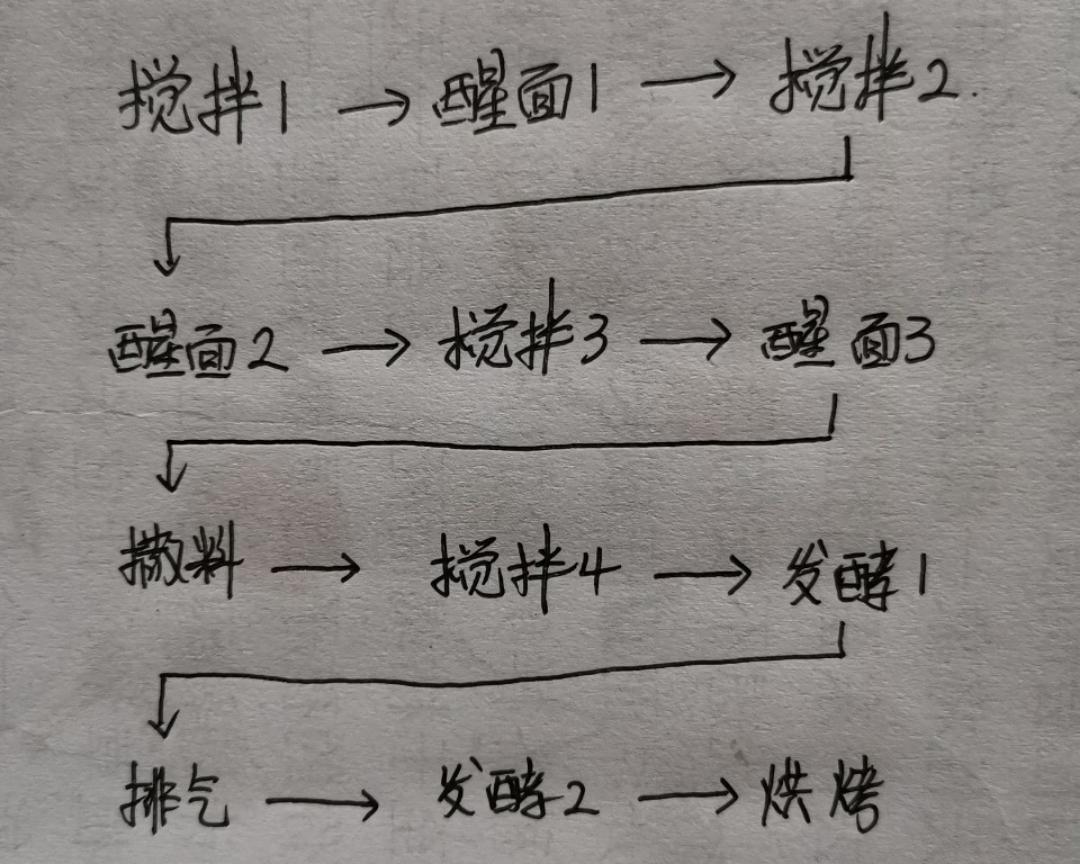 搅拌1 → 醒面1 → 搅拌2.
醒面2 → 搅拌3 → 醒面3
撒料 → 搅拌4 → 发酵1
排气 → 发酵2 → 烘烤